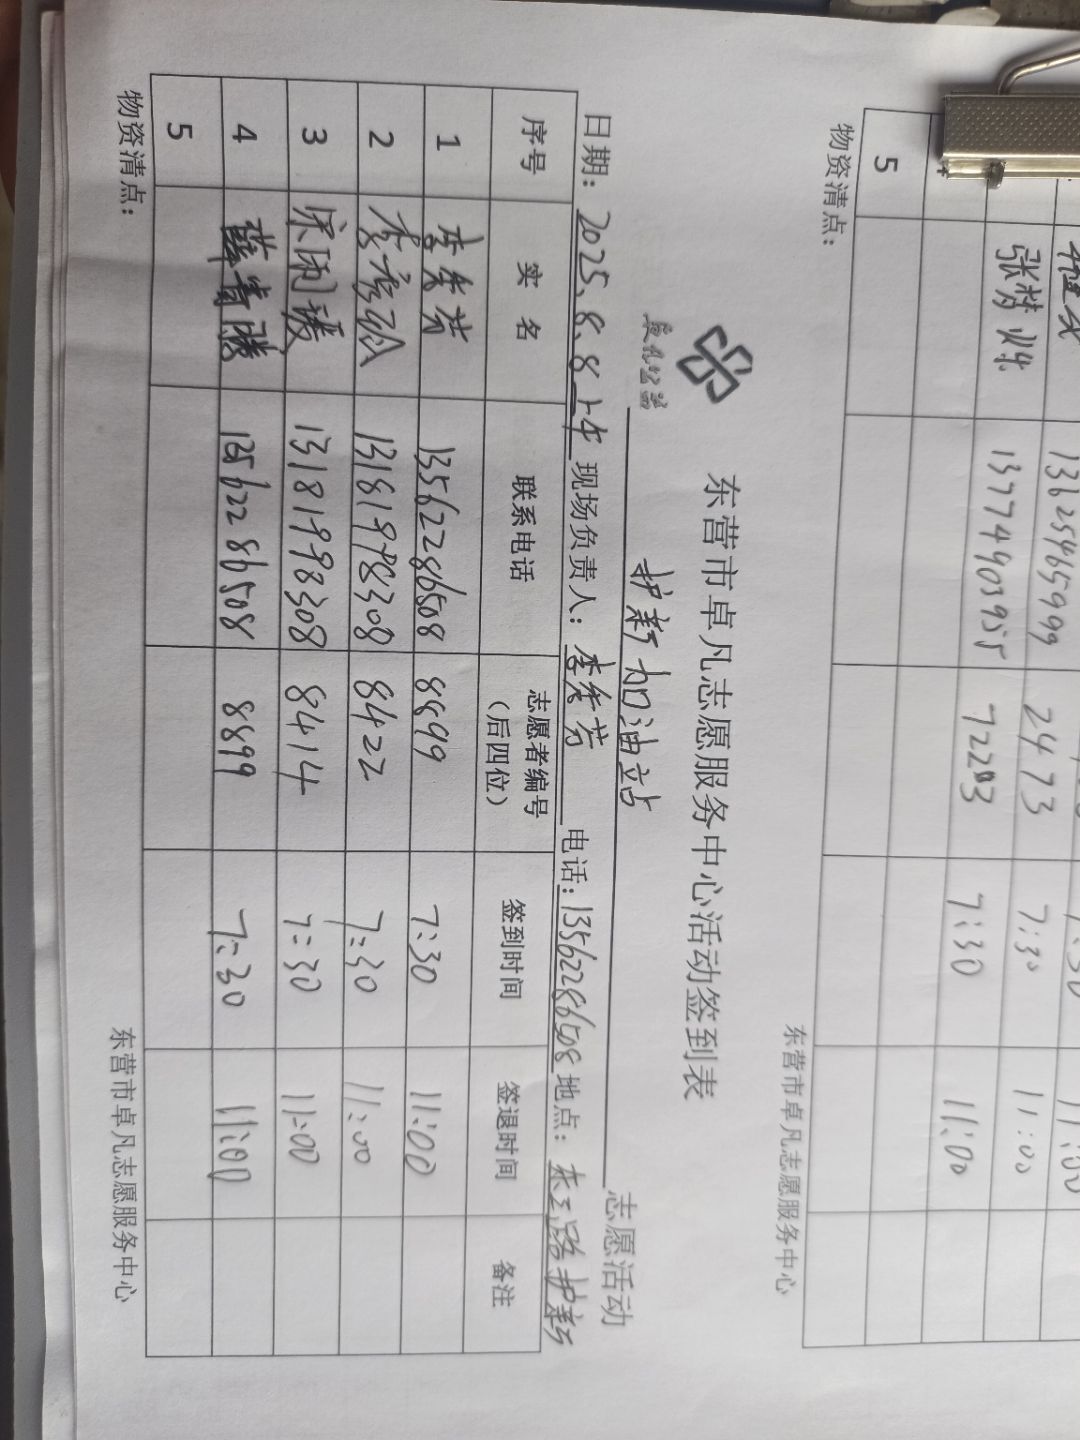 张梦烁
13625465999 2473 7:30 11:00
13774903955 7223 7:30 11:00
5
物资清点:
东营市卓凡志愿服务中心
东营市卓凡志愿服务中心活动签到表
卓凡公益
护新加油站 志愿活动
日期: 2025.8.8上午 现场负责人: 李秀芳 电话: 13562286508 地点: 东三路护新
序号 实名 联系电话 志愿者编号(后四位) 签到时间 签退时间 备注
1 李秀芳 13562286508 8899 7:30 11:00
2 13181998308 8422 7:30 11:00
3 13181998308 8414 7:30 11:00
4 薛青腾 13562286508 8899 7:30 11:00
5
物资清点:
东营市卓凡志愿服务中心